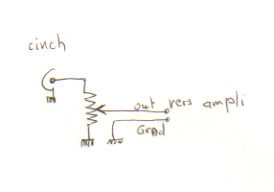 cinch
out vers ampli
Grnd